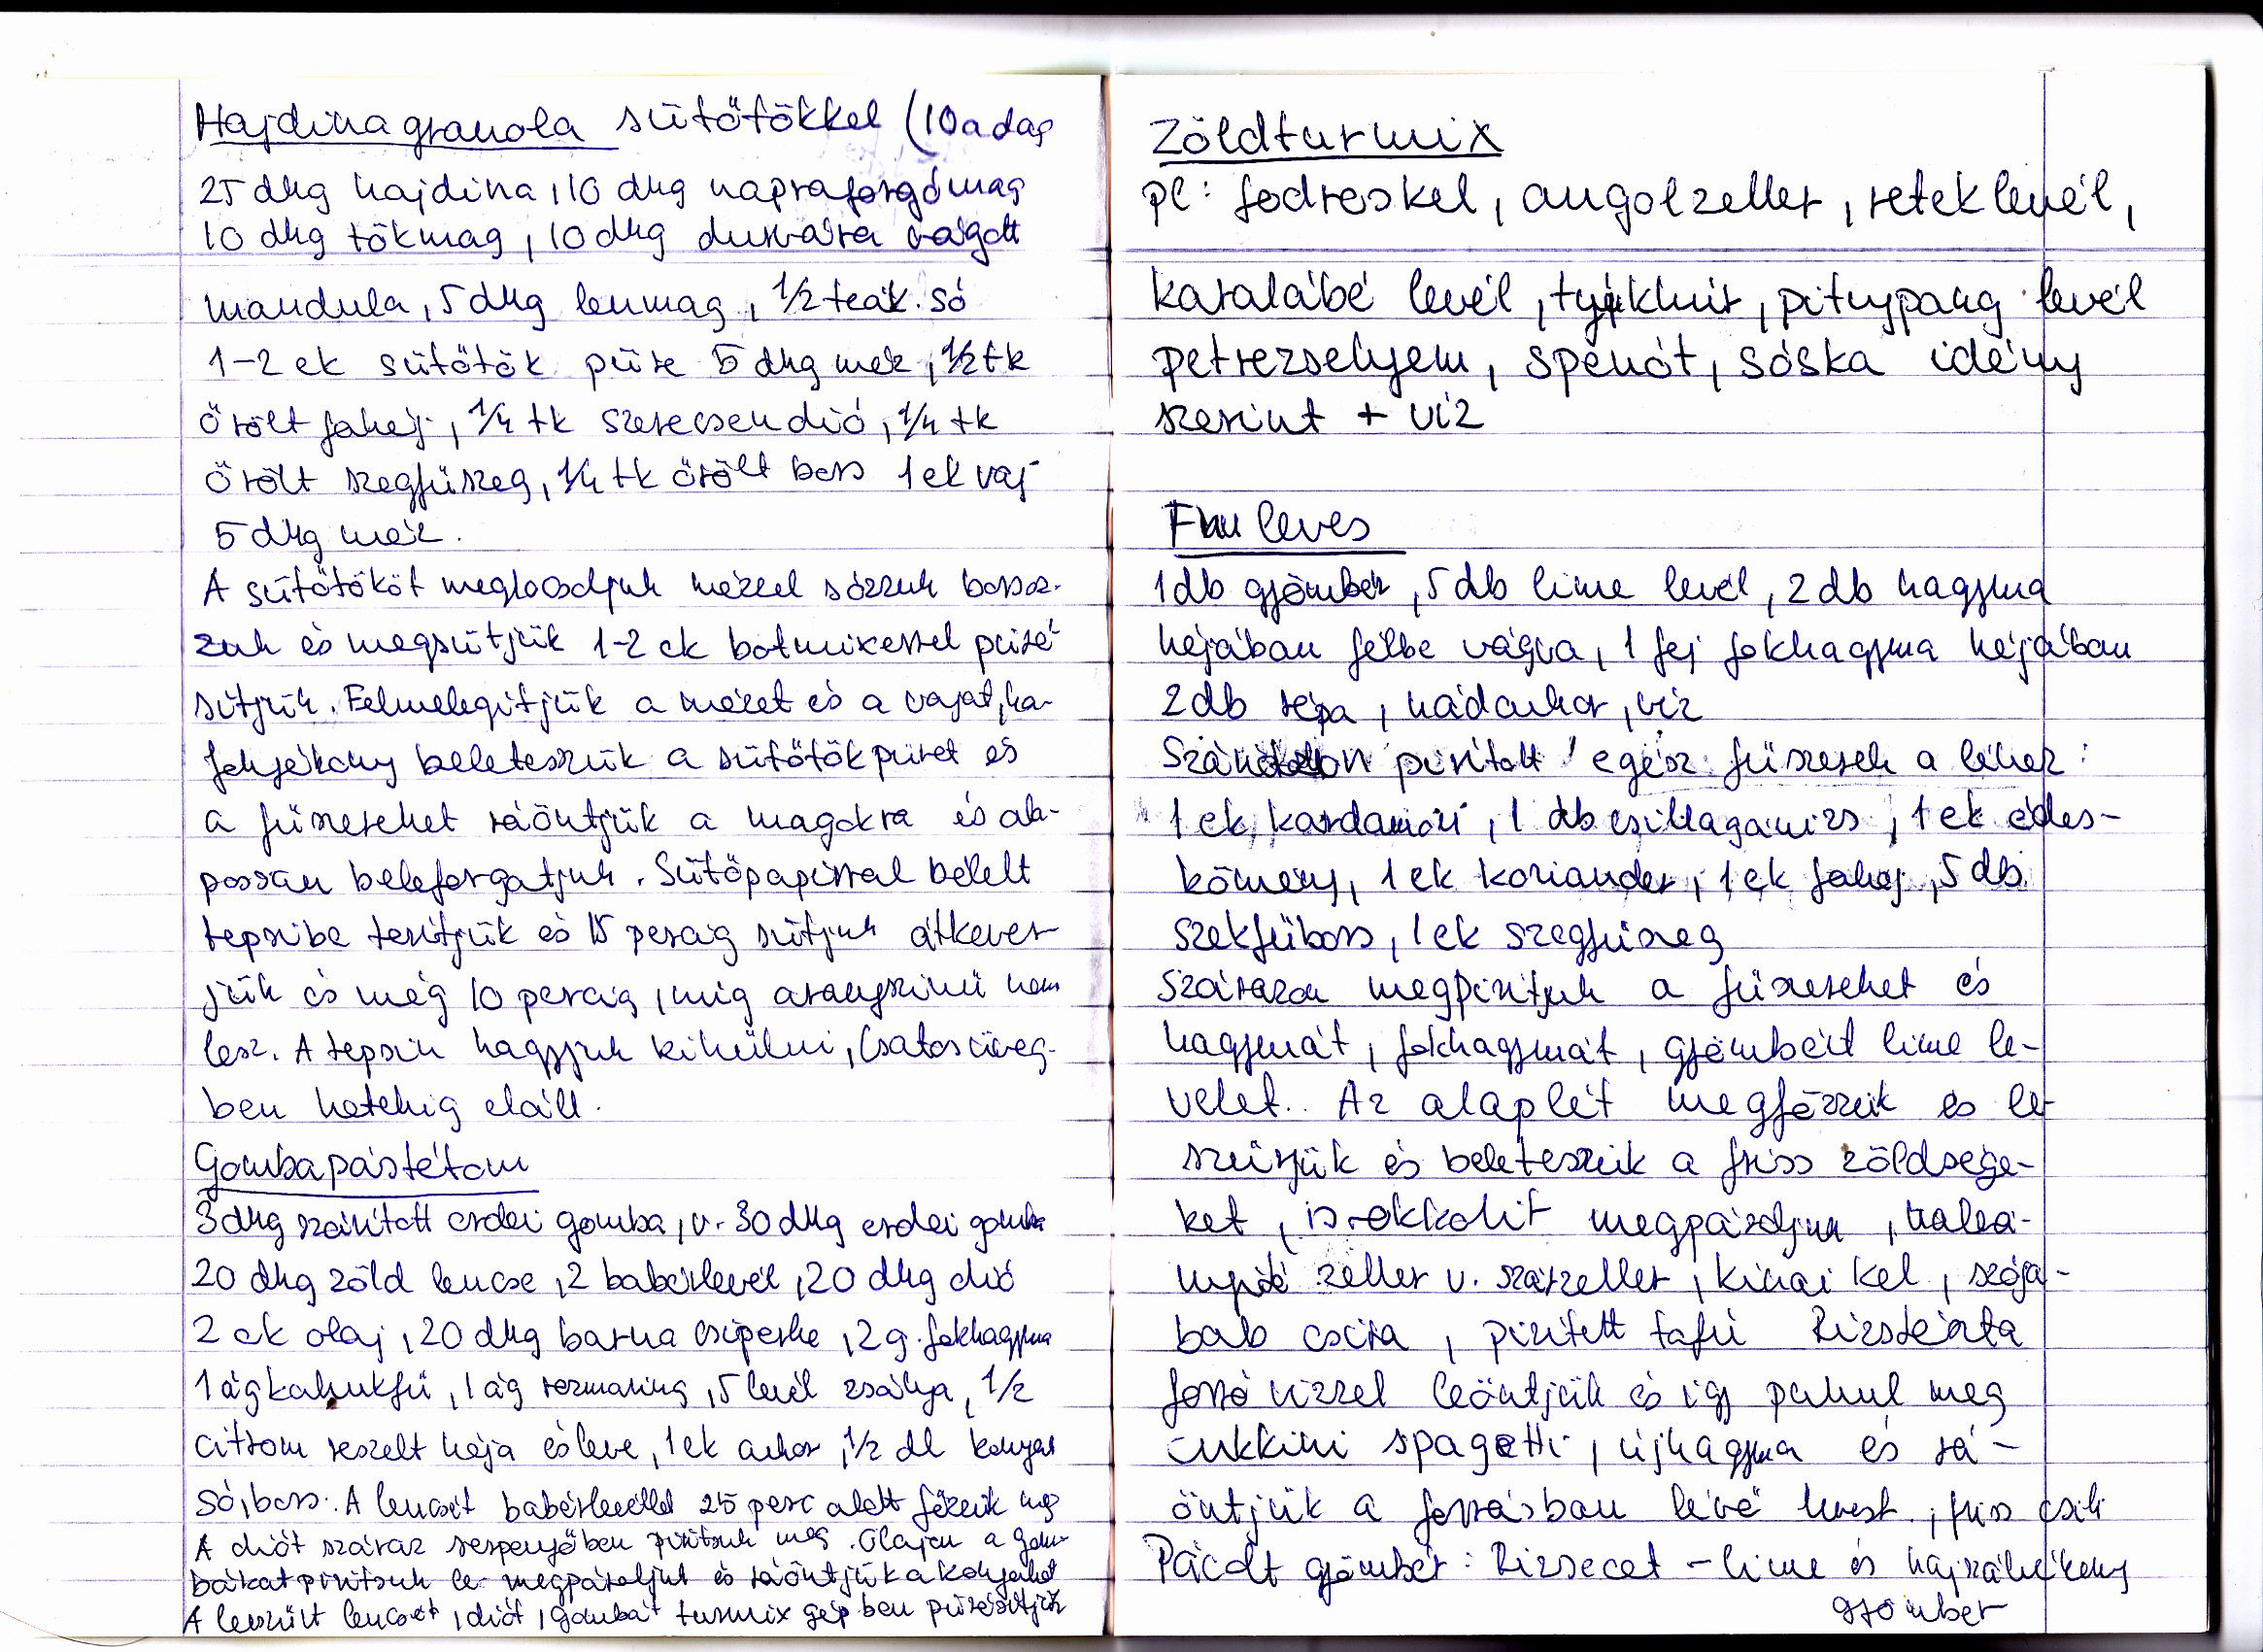 Hajdina granola sütőtökkel (10 adag
25 dkg hajdina, 10 dkg napraforgómag
10 dkg tökmag, 10 dkg durvára vágott
mandula, 5 dkg lenmag, 1/2 teák. só
1-2 ek sütőtök püre 5 dkg méz, 1/2 tk
őrölt fahéj, 1/4 tk szerecsendió, 1/4 tk
őrölt szegfűszeg, 1/4 tk őrölt bors 1 ek vaj
5 dkg méz.
A sütőtököt meglocsoljuk mézzel sózzuk borsoz-
zuk és megsütjük 1-2 ek botmixerrel püré-
sítjük. Felmelegítjük a mézet és a vajat, ha
folyékony beletesszük a sütőtökpürét és
a fűszereket ráöntjük a magokra és ala-
possan beleforgatjuk. Sütőpapírral bélelt
tepsibe terítjük és 15 percig sütjük átkever-
jük és még 10 percig, míg aranyszínű nem
lesz. A tepsin hagyjuk kihűlni, Csatosüveg-
ben hetekig eláll.
Gombapástétom
3 dkg szárított erdei gomba, v. 30 dkg erdei gomba
20 dkg zöld lencse, 2 babérlevél, 20 dkg dió
2 ek olaj, 20 dkg barna csiperke, 2 g. fokhagyma
1 ág kakukfű, 1 ág rozmaring, 5 levél zsálya, 1/2
citrom reszelt héja és leve, 1 ek cukor, 1/2 dl konyak
só, bors. A lencsét babérlevéllel 25 perc alatt főzzük meg
A diót száraz serpenyőben pirítsuk meg. Olajon a gom-
bákat pirítsuk le megpároljuk és ráöntjük a konyakot
A leszűrt lencsét, diót, gombát turmix gép ben pürésítjük
Zöldturmix
pl: fodroskel, angolzeller, reteklevél,
karalábé levél, tyúkhúr, pitypang levél
petrezselyem, spenót, sóska idény
szerint + víz
leves
1 db gyömbér, 5 db lime levél, 2 db hagyma
héjában félbe vágva, 1 fej fokhagyma héjában
2 db répa, nádcukor, víz
pirított egész fűszerek a léhez:
1 ek kardamon, 1 db csillagánizs, 1 ek édes-
kömény, 1 ek koriander, 1 ek fahéj, 5 db
szekfűbors, 1 ek szegfűszeg
Szárazon megpirítjuk a fűszereket és
hagymát, fokhagymát, gyömbért lime le-
velet. Az alaplét megfőzzük és le-
szűrjük és beletesszük a friss zöldsége-
ket, brokkolit megpároljuk,
zeller v. szárzeller, kínai kel, szója-
bab csíra, pirított tofu Rizstészta
forró vízzel leöntjük és így puhul meg
cukkini spagetti, újhagyma és rá-
öntjük a forrásban lévő levest, friss csili
Pácolt gyömbér: Rizsecet - lime és hajszálvékony
gyömbér